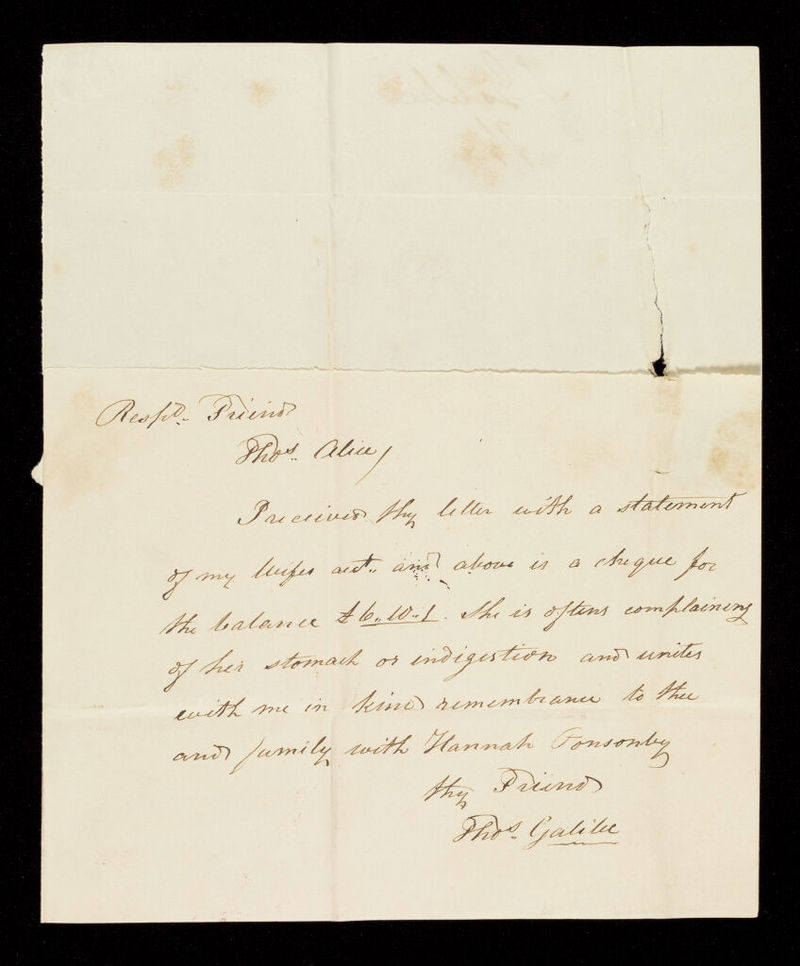 Respd. Friend
Thos. Alice,
I received thy letter with a statement
of my Wifes acct. and above is a cheque for
the balance £6..10..1. She is oftens complaining
of her stomach or indigestion and unites
with me in kind remembrance to thee
and family with Hannah Ponsonby
thy Friend
Thos. Galilee